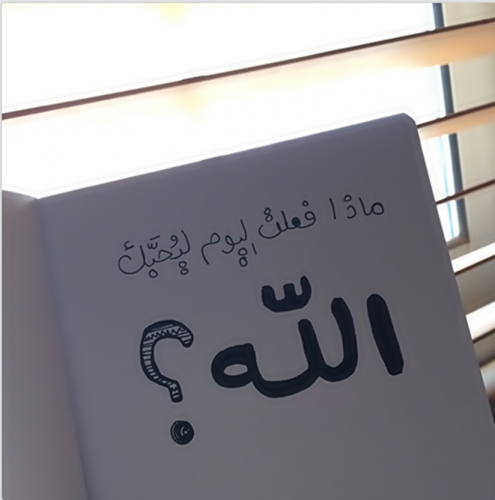 ماذا فعلت ليوم ليُحبَّك
اللّه ؟